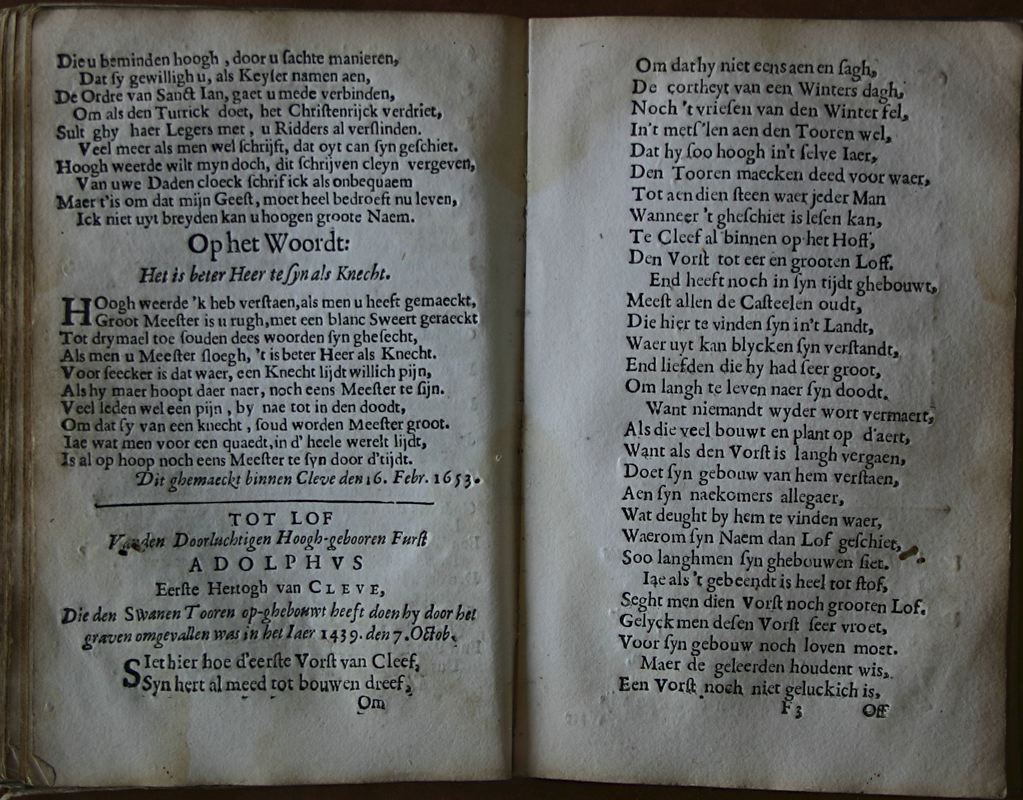 Die u beminden hoogh , door u ſachte manieren,
Dat ſy gewilligh u, als Keyſer namen aen,
De Ordre van Sanct Ian, gaet u mede verbinden,
Om als den Turrick doet, het Chriſtenrijck verdriet,
Sult ghy haer Legers met , u Ridders al verſlinden.
Veel meer als men wel ſchrijft, dat oyt can ſyn geſchiet.
Hoogh weerde wilt myn doch, dit ſchrijven cleyn vergeven,
Van uwe Daden cloeck ſchrif ick als onbequaem
Maer t'is om dat mijn Geeſt, moet heel bedroeft nu leven,
Ick niet uyt breyden kan u hoogen groote Naem.
Op het Woordt:
Het is beter Heer te ſyn als Knecht.
HOogh weerde 'k heb verſtaen, als men u heeft gemaeckt,
Groot Meeſter is u rugh, met een blanc Sweert geraeckt
Tot drymael toe ſouden dees woorden ſyn gheſecht,
Als men u Meeſter ſloegh, 't is beter Heer als Knecht.
Voor ſeecker is dat waer, een Knecht lijdt willich pijn,
Als hy maer hoopt daer naer, noch eens Meeſter te ſijn.
Veel leden wel een pijn , by nae tot in den doodt,
Om dat ſy van een knecht , ſoud worden Meeſter groot.
Iae wat men voor een quaedt, in d' heele werelt lijdt,
Is al op hoop noch eens Meeſter te ſyn door d'tijdt.
Dit ghemaeckt binnen Cleve den 16. Febr. 1653.
TOT LOF
Van den Doorluchtigen Hoogh-gebooren Furſt
ADOLPHVS
Eerſte Hertogh van CLEVE,
Die den Swanen Tooren op-ghebouwt heeft doen hy door het
graven omgevallen was in het Iaer 1439. den 7. Octob.
SIet hier hoe d'eerſte Vorſt van Cleef,
Syn hert al meed tot bouwen dreef,
Om
Om dat hy niet eens aen en ſagh,
De cortheyt van een Winters dagh,
Noch 't vrieſen van den Winter fel,
In't metſ'len aen den Tooren wel,
Dat hy ſoo hoogh in't ſelve Iaer,
Den Tooren maecken deed voor waer,
Tot aen dien ſteen waer jeder Man
Wanneer 't gheſchiet is leſen kan,
Te Cleef al binnen op het Hoff,
Den Vorſt tot eer en grooten Loff.
End heeft noch in ſyn tijdt ghebouwt,
Meeſt allen de Caſteelen oudt,
Die hier te vinden ſyn in't Landt,
Waer uyt kan blycken ſyn verſtandt,
End liefden die hy had ſeer groot,
Om langh te leven naer ſyn doodt.
Want niemandt wyder wort vermaert,
Als die veel bouwt en plant op d'aert,
Want als den Vorſt is langh vergaen,
Doet ſyn gebouw van hem verſtaen,
Aen ſyn naekomers allegaer,
Wat deught by hem te vinden waer,
Waerom ſyn Naem dan Lof geſchiet,
Soo langh men ſyn ghebouwen ſiet.
Iae als 't gebeendt is heel tot ſtof,
Seght men dien Vorſt noch grooten Lof.
Gelyck men deſen Vorſt ſeer vroet,
Voor ſyn gebouw noch loven moet.
Maer de geleerden houdent wis,
Een Vorſt noch niet geluckich is,
F 3
Off